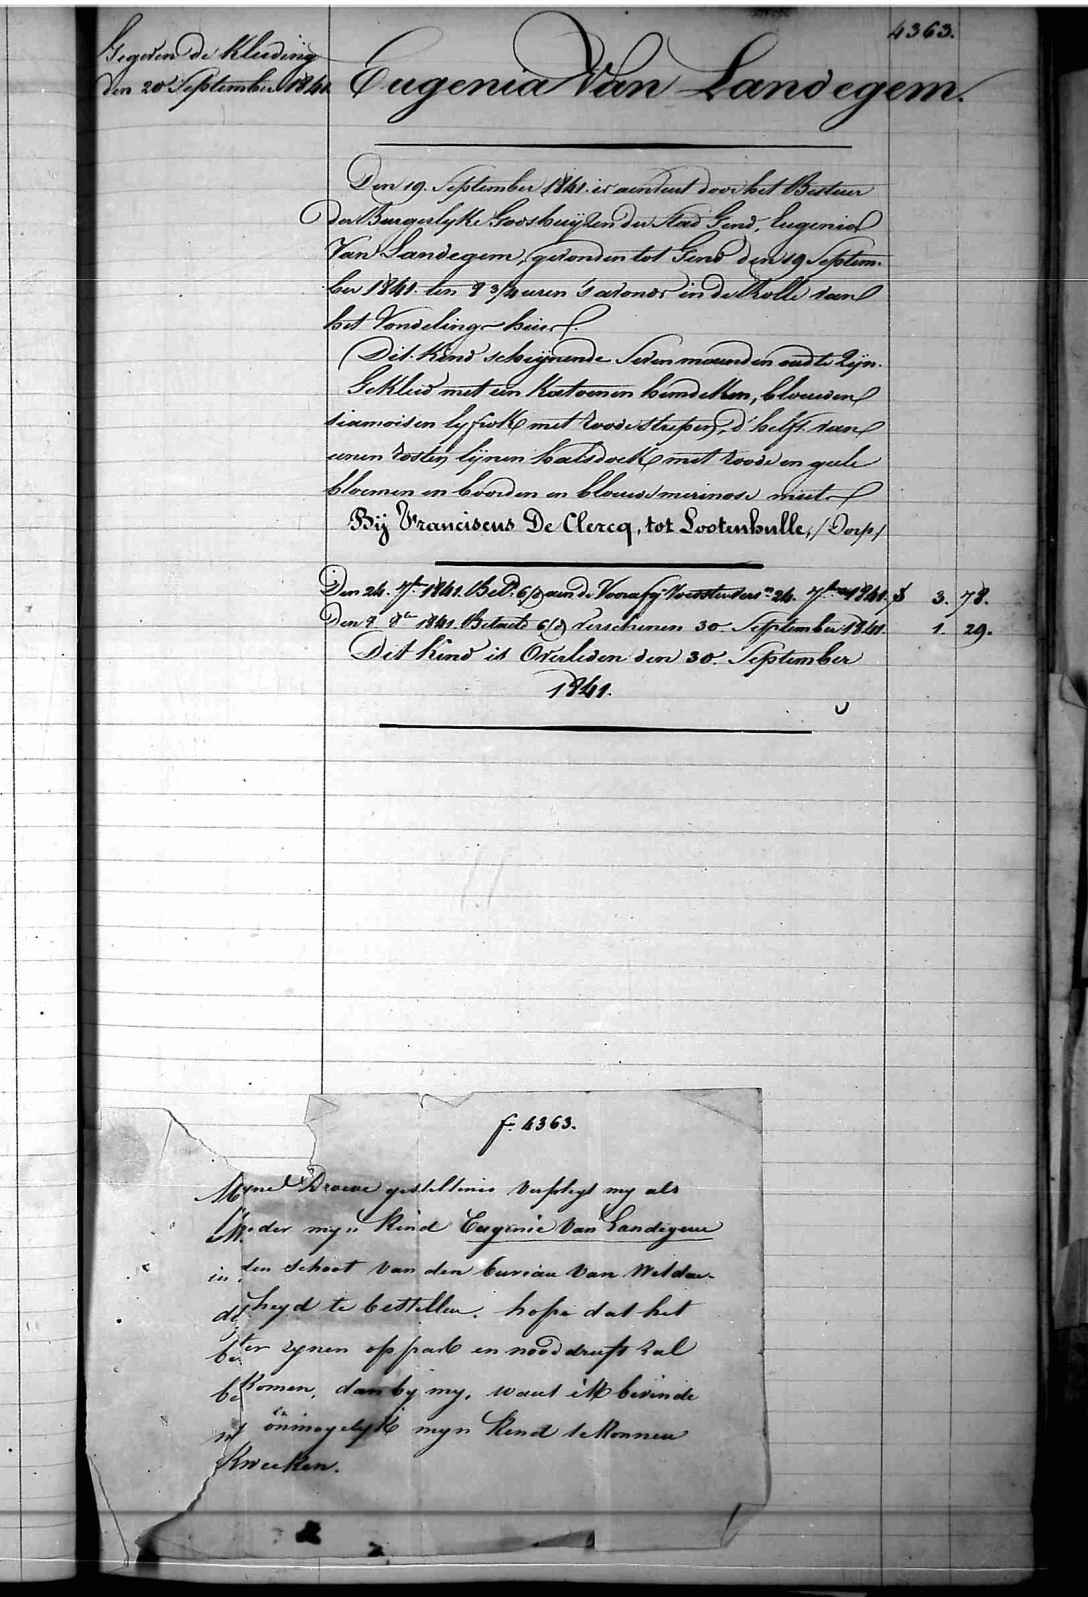 4363.
Gegeven de Kleeding
den 20 September 1841.
Eugenia Van Landegem.
Den 19. September 1841. is aenveert door het Bestuer
der Burgerlyke Godshuijzen der Stad Gend, Eugenia
Van Landegem, gevonden tot Gend den 19 Septem-
ber 1841. ten 8 3/4 uren 's avonds in de Rolle van
het Vondeling-huis.
Dit Kind scheijnende seven maenden oud te zijn.
Gekleed met een Katoenen hemdeken, blauwen
siamoisen lyfrok met roode strepen, d'helft van
eenen rosten lijnen halsdoek met roode en geele
bloemen en boorden en blauwe merinose muts
Bij Franciscus De Clercq, tot Lootenhulle, /Dorp/
Den 24. 7br. 1841. 24. 1841. 3. 78.
Den 8. 1841. Betaeld verschenen 30. September 1841. 1. 29.
Dit Kind is Overleden den 30. September
1841.
f. 4363.
Mynel Droeve gesteltenis verpligt my als
Moeder myn Kind Eugenie Van Landegem
in den schoot van den bureau van Weldae-
digheyd te bestellen. hope dat het
beter zynen oppart en nooddruft zal
bekomen, dan by my, want ik bevinde
onmogelyk myn Kend te konnen
Kweeken.